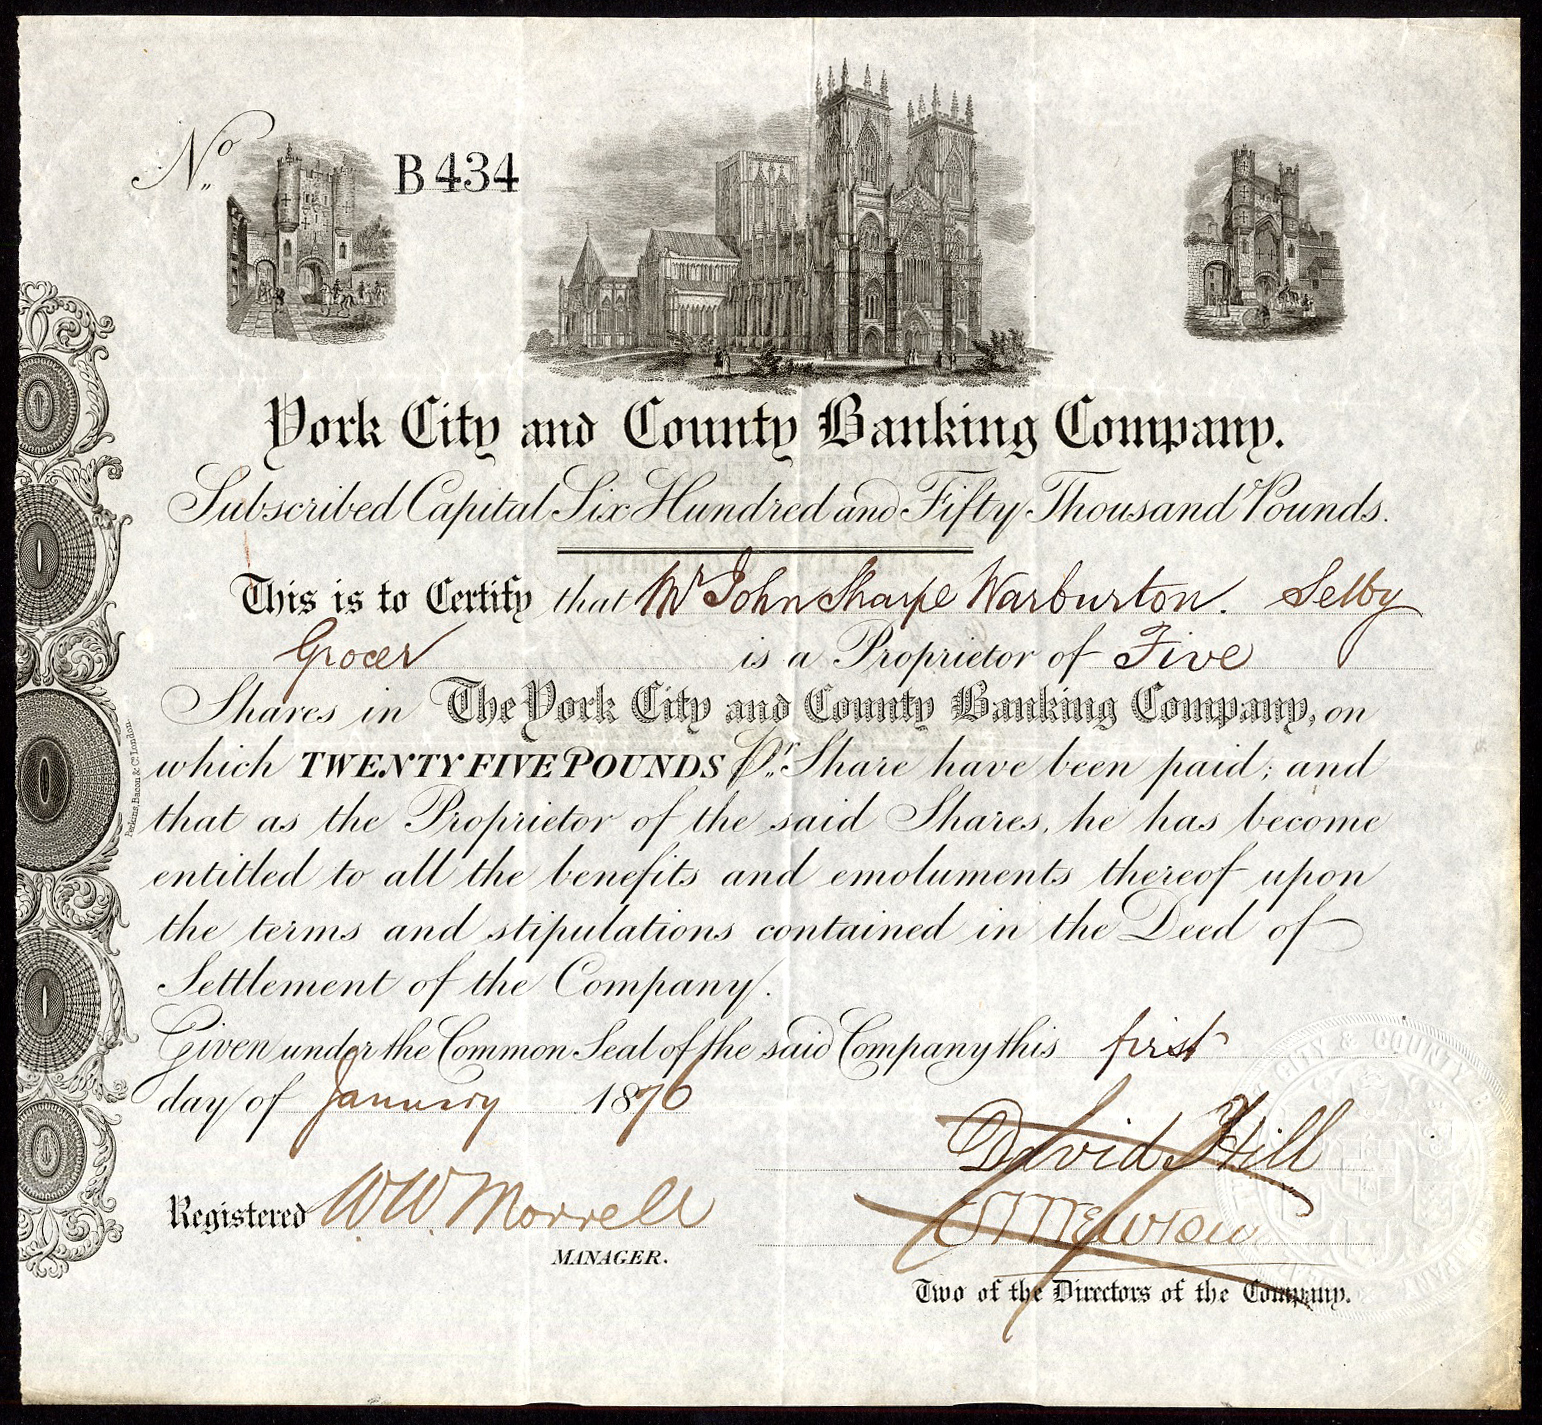 No. B 434
York City and County Banking Company.
Subscribed Capital Six Hundred and Fifty Thousand Pounds.
This is to Certify that Mr John Sharpe Warburton. Selby
Grocer is a Proprietor of Five
Shares in The York City and County Banking Company, on
which TWENTY FIVE POUNDS Pr. Share have been paid; and
that as the Proprietor of the said Shares, he has become
entitled to all the benefits and emoluments thereof upon
the terms and stipulations contained in the Deed of
Settlement of the Company.
Given under the Common Seal of the said Company this first
day of January 1876
David Hill
Registered W W Morrell
MANAGER.
Two of the Directors of the Company.
Perkins, Bacon & Co. London.
CITY & COUNTY